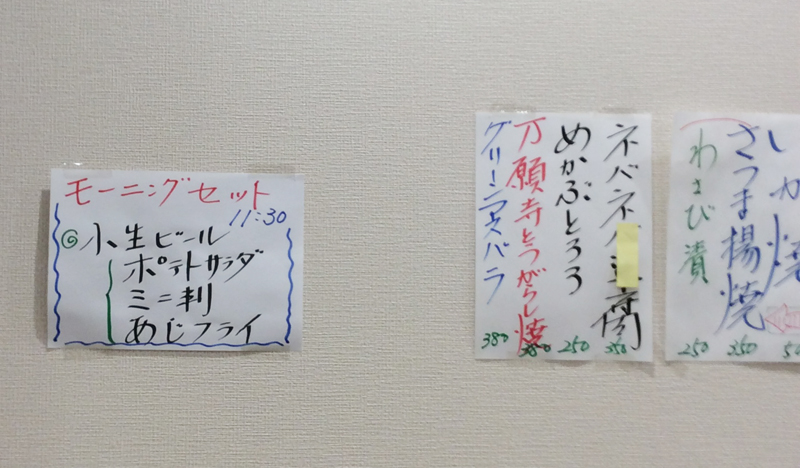 モーニングセット
11:30
小生ビール
ポテトサラダ
ミニ判
あじフライ
ネバネバ
350
めかぶとろろ
250
万願寺とうがらし焼
380
グリーンアスパラ
380
さつま揚焼
350
わさび漬
250